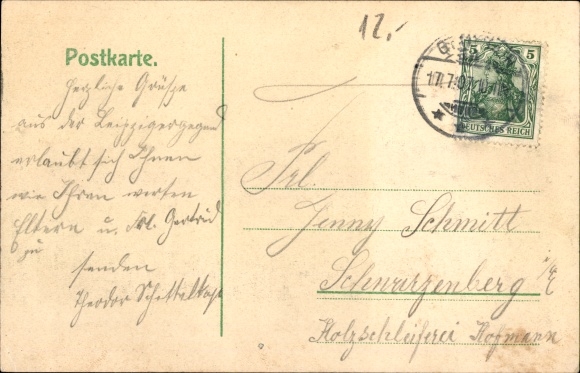 12.-
Postkarte.
Herzliche Grüsse
aus der Leipzigergegend
erlaubt sich Ihnen
wie Ihren werten
Eltern u. Frl. Gertrud
zu
senden
Theodor Schettelkopf
5 5
DEUTSCHES REICH
17.7.07
Frl.
Jenny Schmitt
Schwarzenberg i/E
Holzschleiferei Hofmann